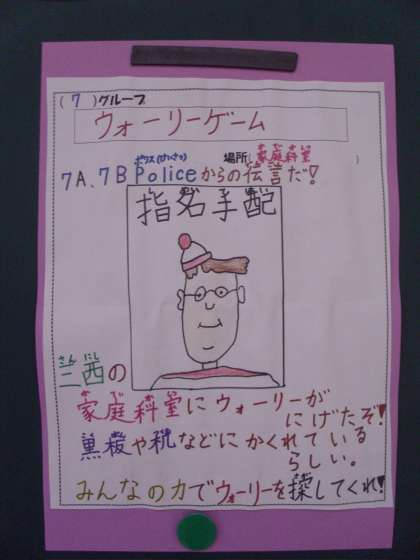 (7)グループ
ウォーリーゲーム
場所(家庭科室)
7A、7B Policeからの伝言だ!
指名手配
さん にし
三西の
家庭科室にウォーリーが
にげたぞ!
黒板や机などにかくれている
らしい。
みんなの力でウォーリーを探してくれ!